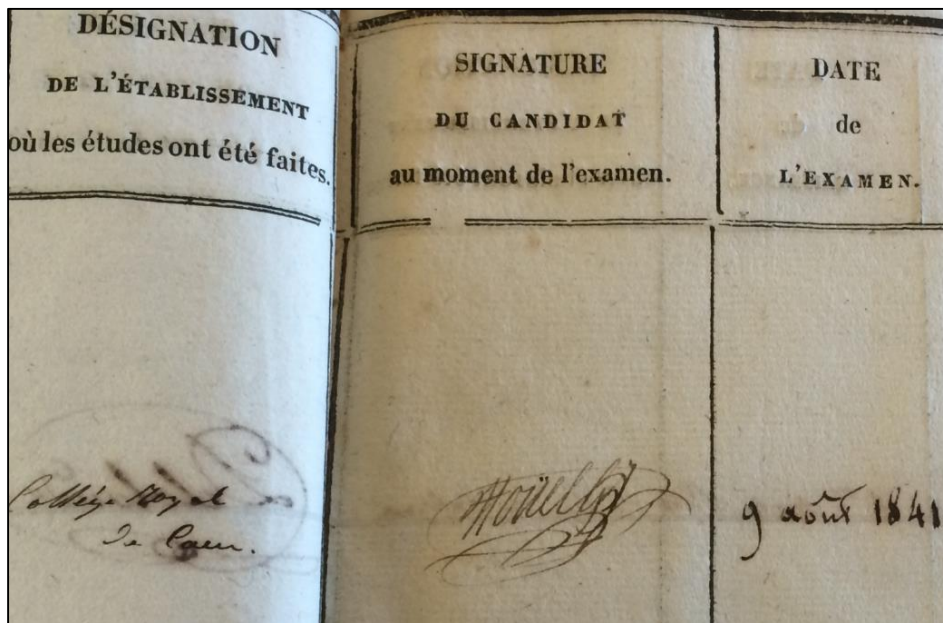 DÉSIGNATION
DE L'ÉTABLISSEMENT
où les études ont été faites.
SIGNATURE
DU CANDIDAT
au moment de l'examen.
DATE
de
L'EXAMEN.
Collége Royal
de Caen.
9 août 1841